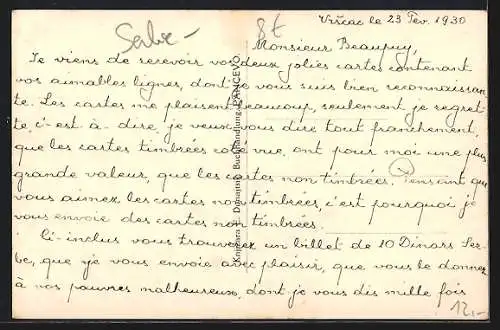 Vršac le 23 Fev. 1930
Serbe -
8t
Monsieur Beaupuy,
Je viens de recevoir vos deux jolies cartes contenant
vos aimables lignes, dont je vous suis bien reconnaissan-
te. Les cartes me plaisent beaucoup, seulement je regret-
te c'est à-dire, je veux vous dire tout franchement,
que les cartes timbrées coté vue, ont pour moi une plus
grande valeur, que les cartes non timbrées. Pensant que
vous aimez les cartes non timbrées, c'est pourquoi je
vous envoie des cartes non timbrées.
Ci-inclus vous trouverez un billet de 10 Dinars Ser-
be, que je vous envoie avec plaisir, que vous le donnez
à vos pauvres malheureuse, dont je vous dis mille fois
12.-
Knjižara Domajnko Buchhandlung, PANČEVO